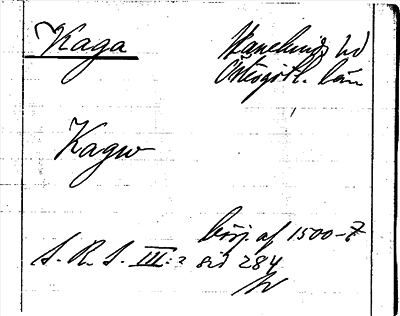 Kaga
Hanekinds hd
Östergötl. län
Kagw
börj. af 1500-t
S. R. S. III: 2 sid 284